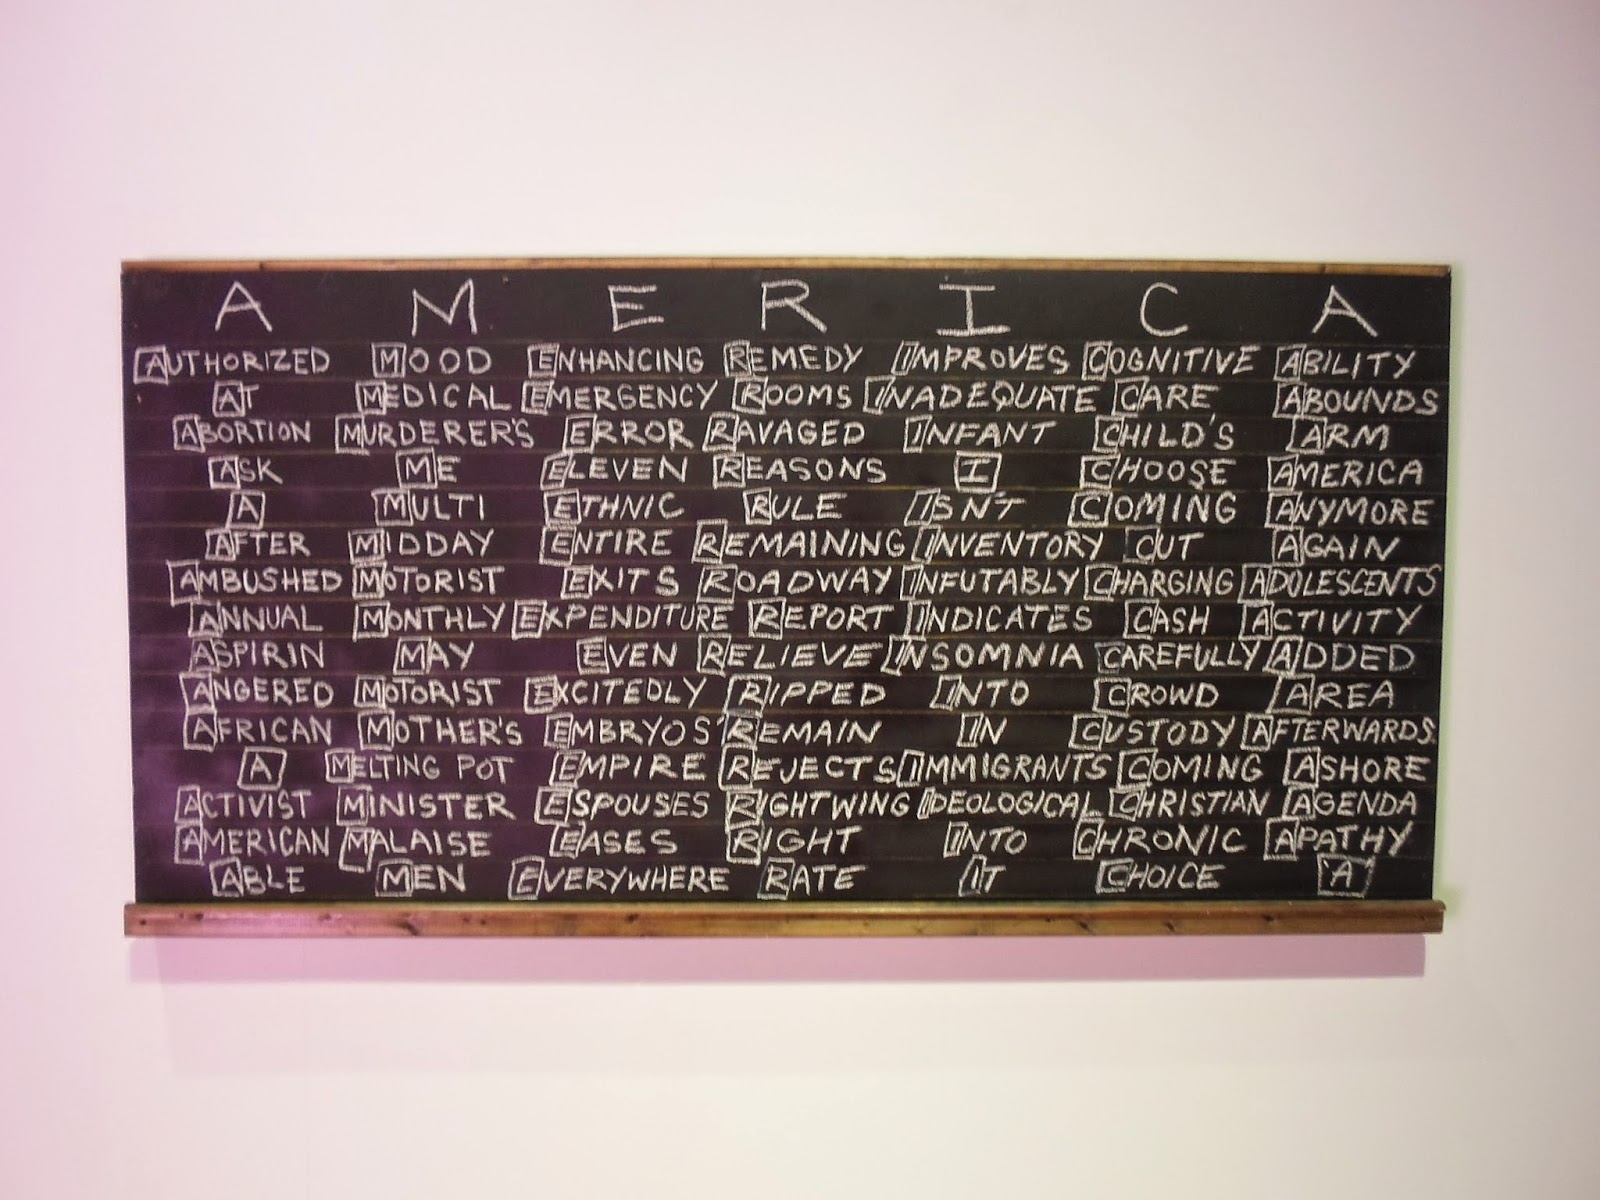 A M E R I C A
AUTHORIZED MOOD ENHANCING REMEDY IMPROVES COGNITIVE ABILITY
AT MEDICAL EMERGENCY ROOMS INADEQUATE CARE ABOUNDS
ABORTION MURDERER'S ERROR RAVAGED INFANT CHILD'S ARM
ASK ME ELEVEN REASONS I CHOOSE AMERICA
A MULTI ETHNIC RULE ISN'T COMING ANYMORE
AFTER MIDDAY ENTIRE REMAINING INVENTORY CUT AGAIN
AMBUSHED MOTORIST EXITS ROADWAY INFUTABLY CHARGING ADOLESCENTS
ANNUAL MONTHLY EXPENDITURE REPORT INDICATES CASH ACTIVITY
ASPIRIN MAY EVEN RELIEVE INSOMNIA CAREFULLY ADDED
ANGERED MOTORIST EXCITEDLY RIPPED INTO CROWD AREA
AFRICAN MOTHER'S EMBRYOS' REMAIN IN CUSTODY AFTERWARDS
A MELTING POT EMPIRE REJECTS IMMIGRANTS COMING ASHORE
ACTIVIST MINISTER ESPOUSES RIGHTWING IDEOLOGICAL CHRISTIAN AGENDA
AMERICAN MALAISE EASES RIGHT INTO CHRONIC APATHY
ABLE MEN EVERYWHERE RATE IT CHOICE "A"